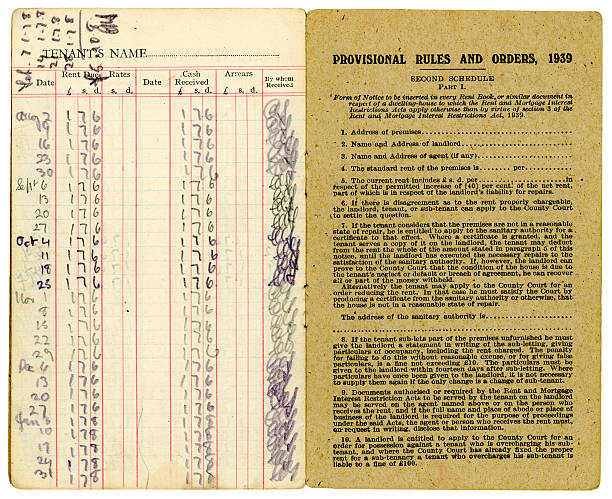 TENANT'S NAME
Date Rent Dues Rates Date Cash Received Arrears By whom Received
£ s. d. s. d. £ s. d. £ s. d.
Aug 2 1 7 6 1 7 6
9 1 7 6 1 7 6
16 1 7 6 1 7 6
23 1 7 6 1 7 6
30 1 7 6 1 7 6
Sept 6 1 7 6 1 7 6
13 1 7 6 1 7 6
20 1 7 6 1 7 6
27 1 7 6 1 7 6
Oct 4 1 7 6 1 7 6
11 1 7 6 1 7 6
18 1 7 6 1 7 6
25 1 7 6 1 7 6
1 1 7 6 1 7 6
8 1 7 6 1 7 6
15 1 7 6 1 7 6
22 1 7 6 1 7 6
29 1 7 6 1 7 6
6 1 7 6 1 7 6
13 1 7 6 1 7 6
20 1 7 6 1 7 6
27 1 7 6 1 7 6
1 7 8 1 7 8
10 1 7 8 1 7 8
17 1 7 8 1 7 8
24 1 7 8 1 7 8
31 1 7 8 1 7 8
PROVISIONAL RULES AND ORDERS, 1939
SECOND SCHEDULE
PART I.
Form of Notice to be inserted in every Rent Book, or similar document in
respect of a dwelling-house to which the Rent and Mortgage Interest
Restrictions Acts apply otherwise than by virtue of section 3 of the
Rent and Mortgage Interest Restrictions Act, 1939.
1. Address of premises
2. Name and Address of landlord
3. Name and Address of agent (if any)
4. The standard rent of the premises is per
5. The current rent includes £ s. d. per in
respect of the permitted increase of [40] per cent. of the net rent,
part of which is in respect of the landlord's liability for repairs.
6. If there is disagreement as to the rent properly chargeable,
the landlord, tenant, or sub-tenant can apply to the County Court
to settle the question.
7. If the tenant considers that the premises are not in a reasonable
state of repair, he is entitled to apply to the sanitary authority for a
certificate to that effect. Where a certificate is granted, and the
tenant serves a copy of it on the landlord, the tenant may deduct
from the rent the whole of the amount stated in paragraph 5 of this
notice, until the landlord has executed the necessary repairs to the
satisfaction of the sanitary authority. If, however, the landlord can
prove to the County Court that the condition of the house is due to
the tenant's neglect or default or breach of agreement, he can recover
all or part of the money withheld.
Alternatively the tenant may apply to the County Court for an
order reducing the rent. In that case he must satisfy the Court by
producing a certificate from the sanitary authority or otherwise, that
the house is not in a reasonable state of repair.
The address of the sanitary authority is
8. If the tenant sub-lets part of the premises unfurnished he must
give the landlord a statement in writing of the sub-letting, giving
particulars of occupancy, including the rent charged. The penalty
for failing to do this without reasonable excuse, or for giving false
particulars, is a fine not exceeding £10. The particulars must be
given to the landlord within fourteen days after sub-letting. Where
particulars have once been given to the landlord, it is not necessary
to supply them again if the only change is a change of sub-tenant.
9. Documents authorised or required by the Rent and Mortgage
Interest Restriction Acts to be served by the tenant on the landlord
may be served on the agent named above or on the person who
receives the rent, and if the full name and place of abode or place of
business of the landlord is required for the purpose of proceedings
under the said Acts, the agent or person who receives the rent must,
on request in writing, disclose that information.
10. A landlord is entitled to apply to the County Court for an
order for possession against a tenant who is overcharging his sub-
tenant, and where the County Court has already fixed the proper
rent for a sub-tenancy a tenant who overcharges his sub-tenant is
liable to a fine of £100.